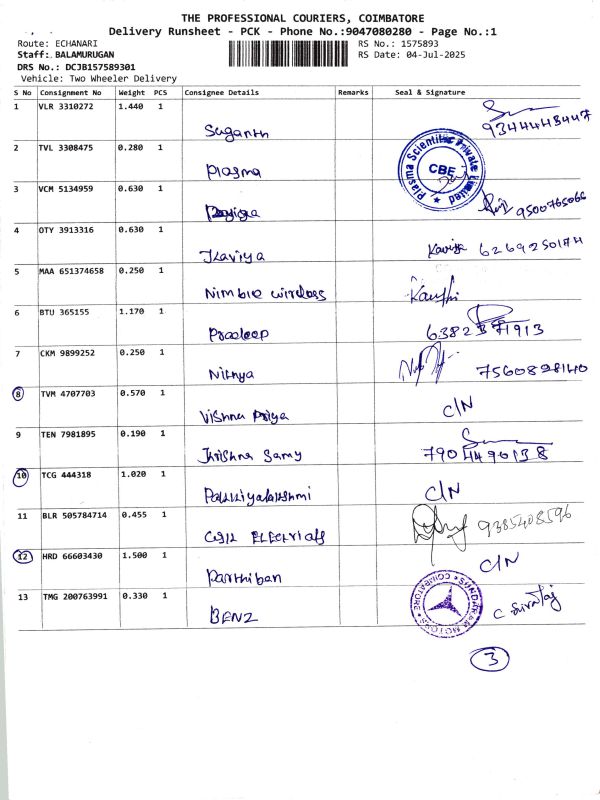 THE PROFESSIONAL COURIERS, COIMBATORE
Delivery Runsheet - PCK - Phone No.:9047080280 - Page No.:1
Route: ECHANARI
RS No.: 1575893
Staff: BALAMURUGAN
RS Date: 04-Jul-2025
DRS No.: DCJB157589301
Vehicle: Two Wheeler Delivery
S No Consignment No Weight PCS Consignee Details Remarks Seal & Signature
1 VLR 3310272 1.440 1
Suganth 9344448447
2 TVL 3308475 0.280 1
Plasma Plasma Scientific Private Limited CBE
3 VCM 5134959 0.630 1
9500765066
4 OTY 3913316 0.630 1
Kaviya Kaviya 6269250174
5 MAA 651374658 0.250 1
Nimble wireless
6 BTU 365155 1.170 1
Pradeep 6382371913
7 CKM 9899252 0.250 1
Nithya 7560828140
8 TVM 4707703 0.570 1
Vishnu Priya C/N
9 TEN 7981895 0.190 1
Krishna Samy 7904490138
10 TCG 444318 1.020 1
C/N
11 BLR 505784714 0.455 1
9385408596
12 HRD 66603430 1.500 1
Parthiban C/N
13 TMG 200763991 0.330 1
BENZ MOTORS COIMBATORE
3